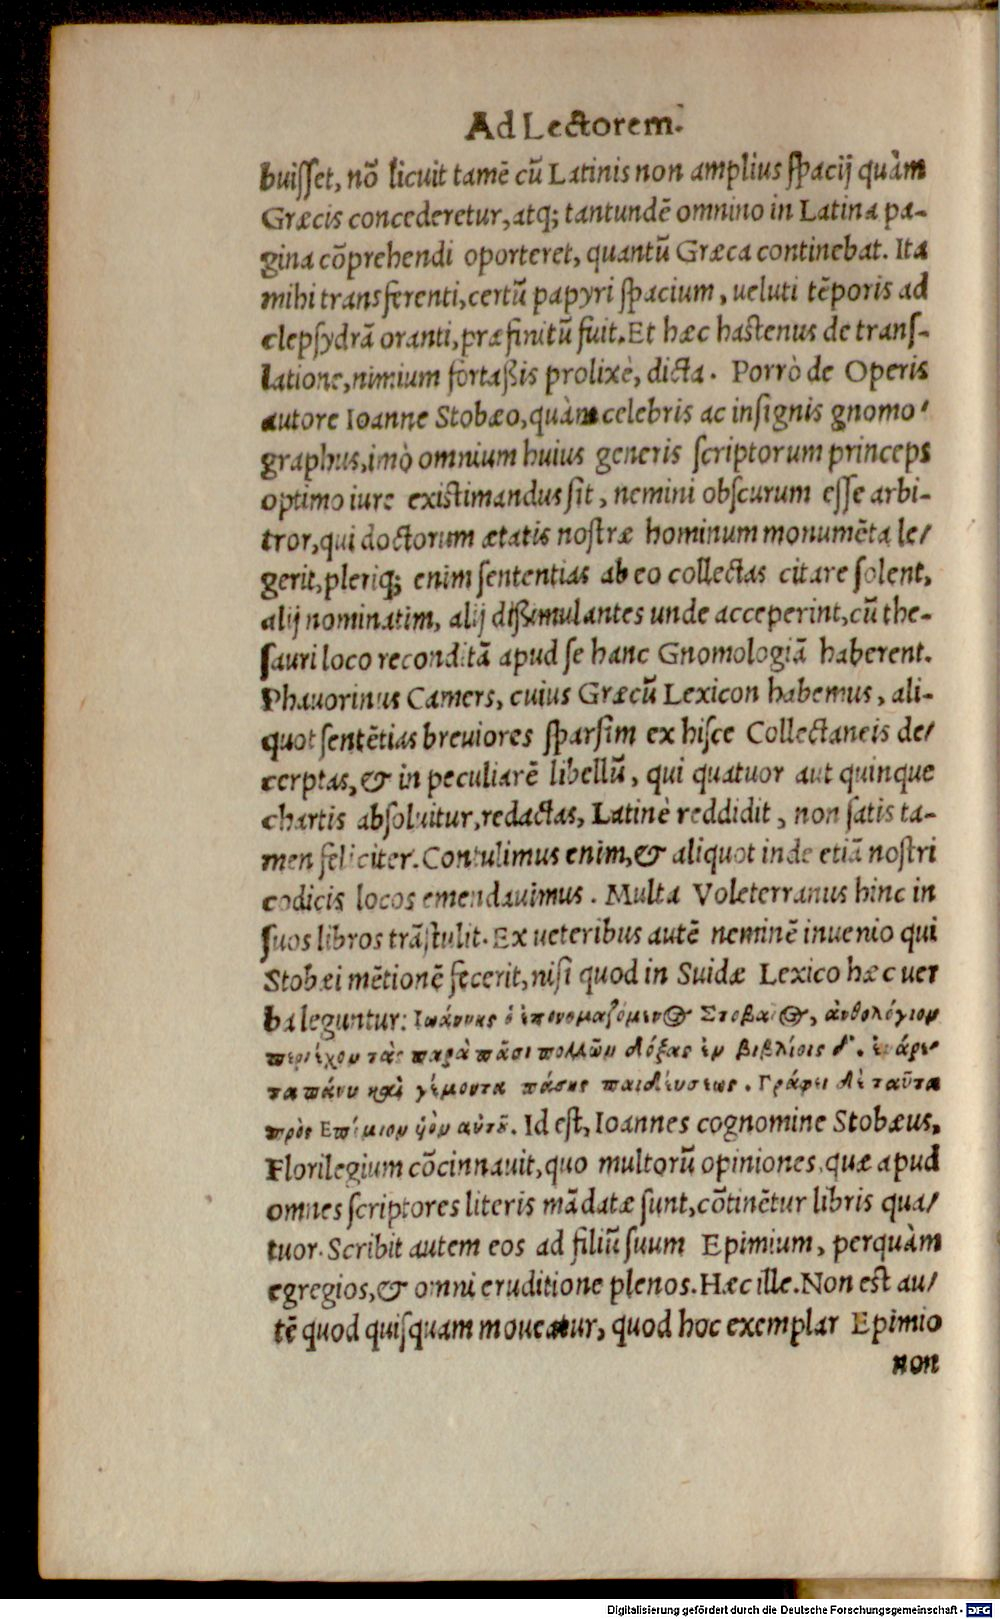 Ad Lectorem.
buisset, nõ licuit tamẽ cũ Latinis non amplius spacij quàm
Græcis concederetur, atq; tantundẽ omnino in Latina pa-
gina cõprehendi oporteret, quantũ Græca continebat. Ita
mihi transferenti, certũ papyri spacium, ueluti tẽporis ad
clepsydrã oranti, præfinitũ fuit. Et hæc hactenus de trans-
latione, nimium fortaßis prolixè, dicta. Porrò de Operis
autore Ioanne Stobæo, quàm celebris ac insignis gnomo-
graphus, imò omnium huius generis scriptorum princeps
optimo iure existimandus sit, nemini obscurum esse arbi-
tror, qui doctorum ætatis nostræ hominum monumẽta le-
gerit, pleriq; enim sententias ab eo collectas citare solent,
alij nominatim, alij dißimulantes unde acceperint, cũ the-
sauri loco reconditã apud se hanc Gnomologiã haberent.
Phauorinus Camers, cuius Græcũ Lexicon habemus, ali-
quot sentẽtias breuiores sparsim ex hisce Collectaneis de-
cerptas, & in peculiarẽ libellũ, qui quatuor aut quinque
chartis absoluitur, redactas, Latinè reddidit, non satis ta-
men feliciter. Contulimus enim, & aliquot inde etiã nostri
codicis locos emendauimus. Multa Voleterranus hinc in
suos libros trãstulit. Ex ueteribus autẽ neminẽ inuenio qui
Stobæi mẽtionẽ fecerit, nisi quod in Suidæ Lexico hæc uer
ba leguntur: Ἰωάννης ὁ ἐπονομαζόμενος Στοβαῖος, ἀνθολόγιον
περιέχον τὰς παρὰ πᾶσι πολλῶν δόξας ἐν βιβλίοις δ'. ἐνάρε-
τα πάνυ καὶ γέμοντα πάσης παιδεύσεως. Γράφει δὲ ταῦτα
πρὸς Επίμιον ὑὸν αὐτȣ͂. Id est, Ioannes cognomine Stobæus,
Florilegium cõcinnauit, quo multorũ opiniones, quæ apud
omnes scriptores literis mãdatæ sunt, cõtinẽtur libris qua-
tuor. Scribit autem eos ad filiũ suum Epimium, perquàm
egregios, & omni eruditione plenos. Hæc ille. Non est au-
tẽ quod quisquam moueatur, quod hoc exemplar Epimio
non
Digitalisierung gefördert durch die Deutsche Forschungsgemeinschaft - DFG